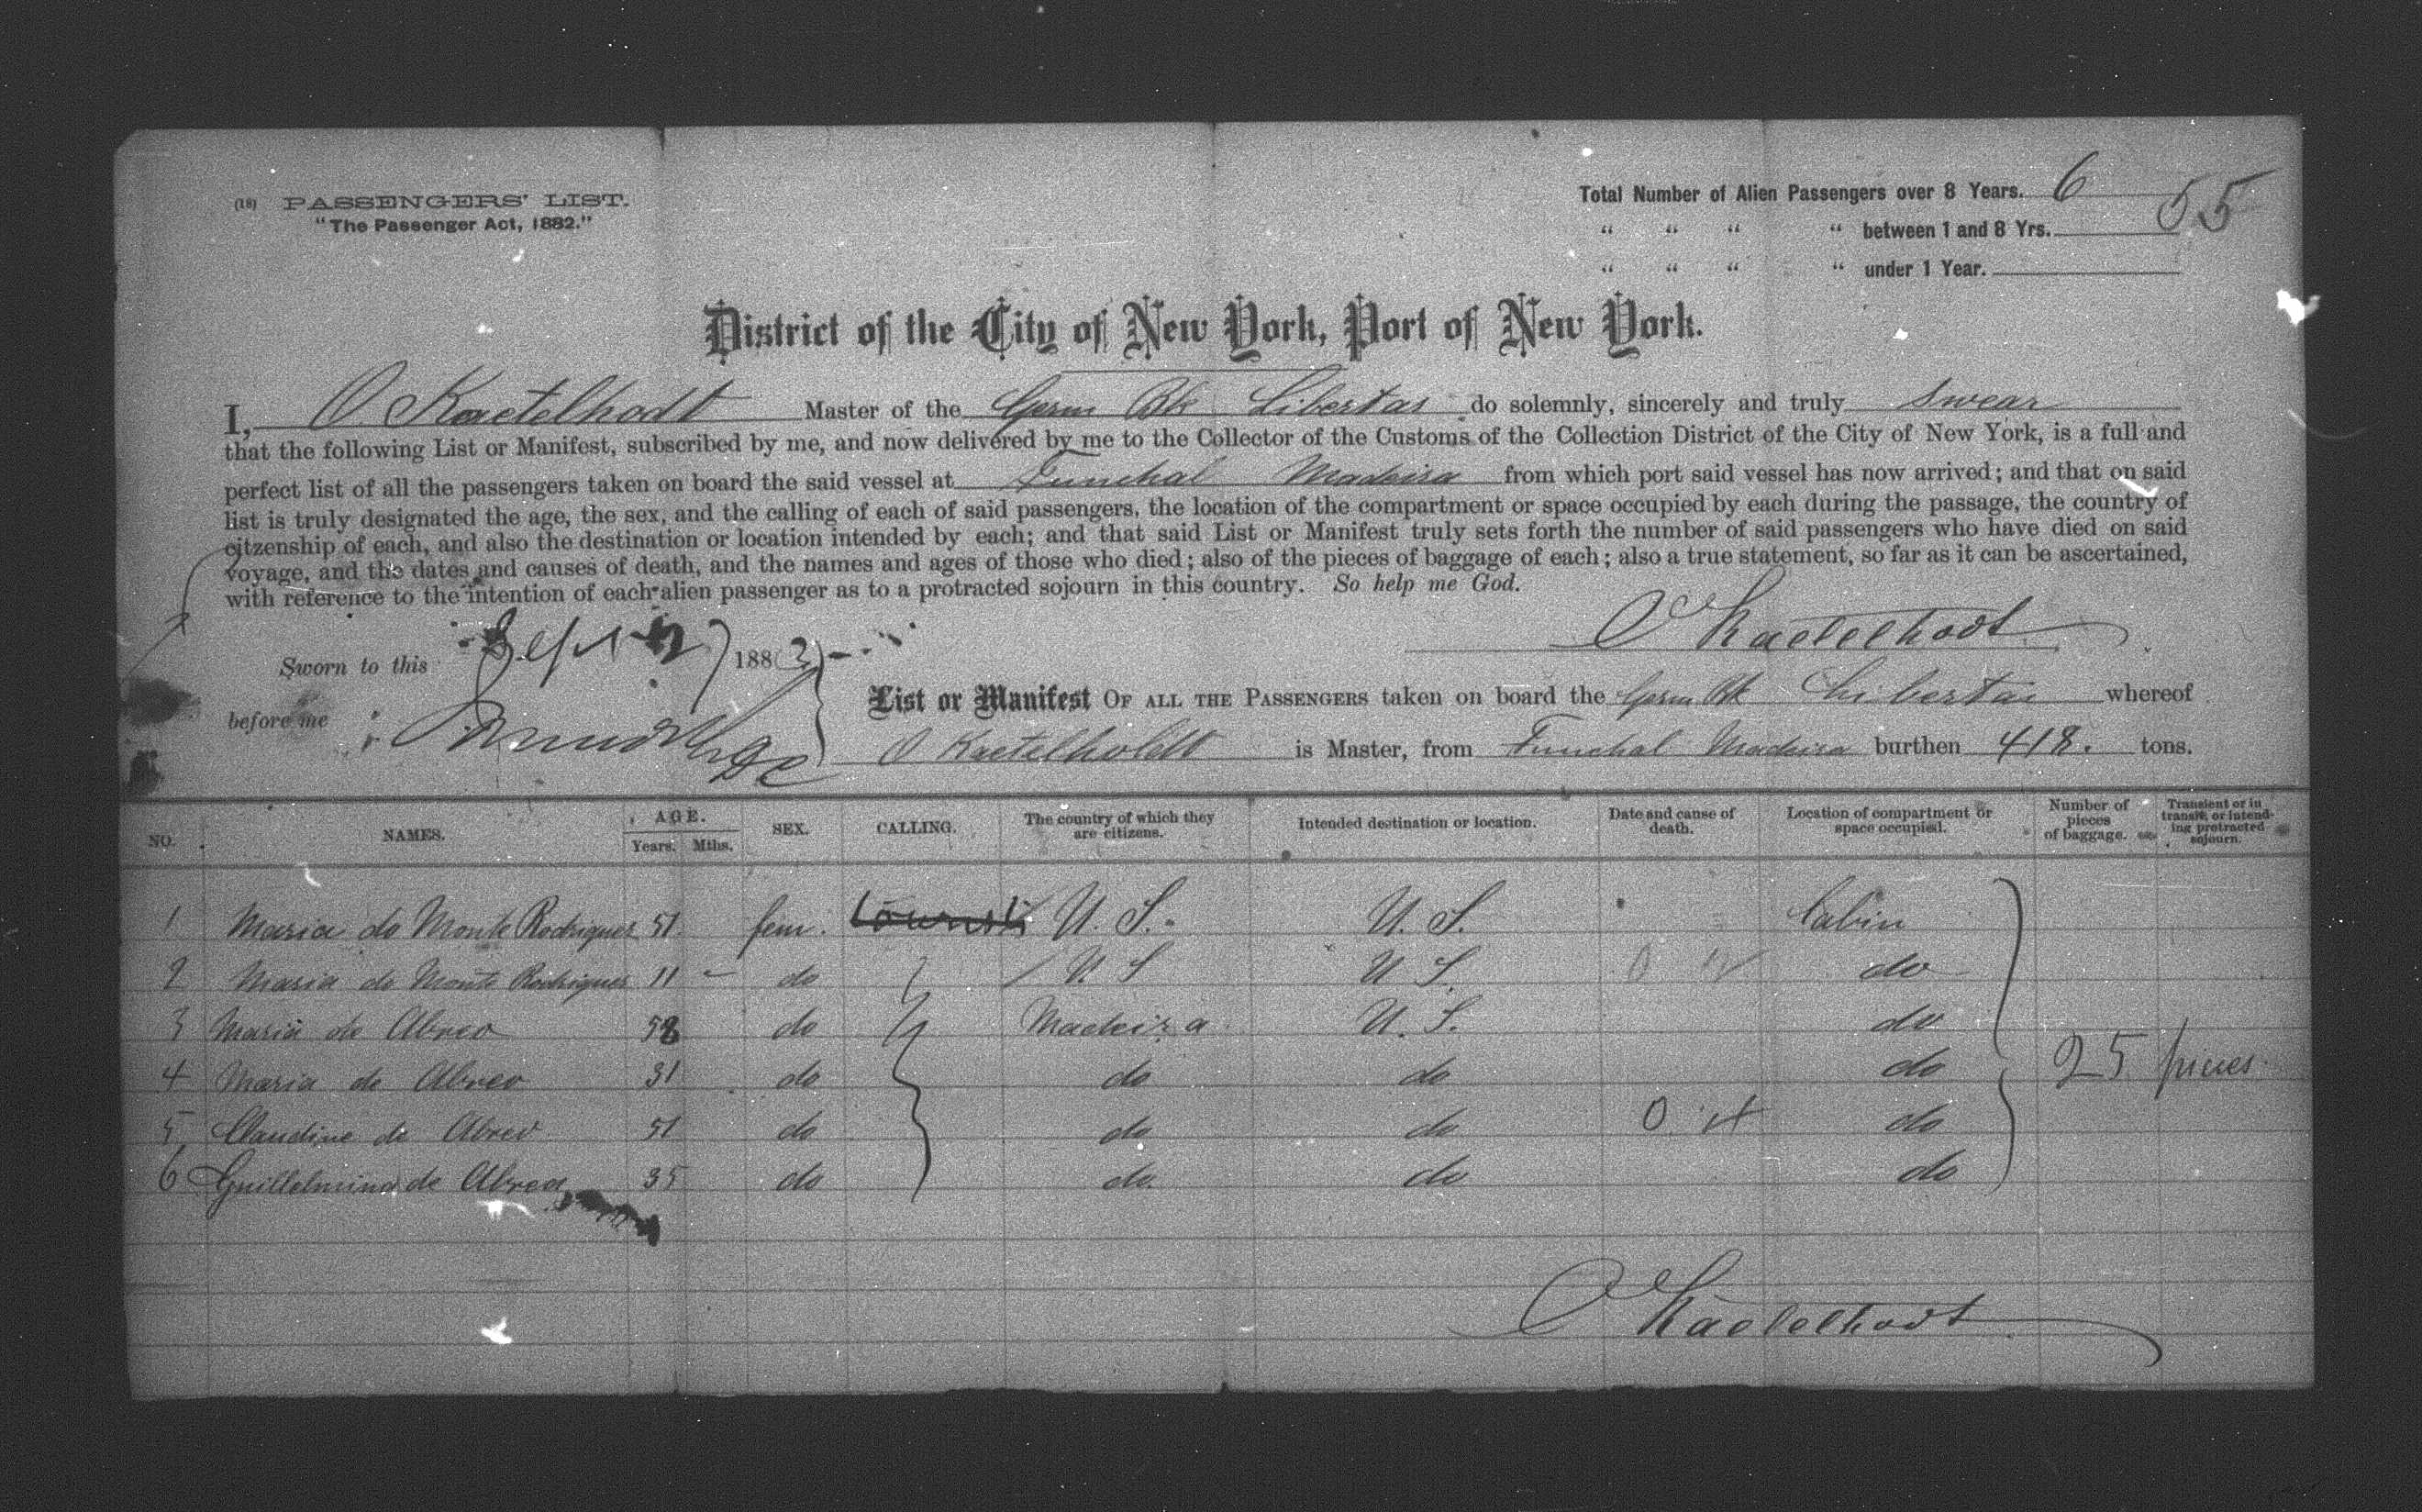 (18) PASSENGERS' LIST.
"The Passenger Act, 1882."
Total Number of Alien Passengers over 8 Years. 6
" " " " between 1 and 8 Yrs. 55
" " " " under 1 Year.
District of the City of New York, Port of New York.
I, O. Kaetelhodt Master of the Germ Bk Libertas do solemnly, sincerely and truly swear
that the following List or Manifest, subscribed by me, and now delivered by me to the Collector of the Customs of the Collection District of the City of New York, is a full and
perfect list of all the passengers taken on board the said vessel at Funchal Madeira from which port said vessel has now arrived; and that on said
list is truly designated the age, the sex, and the calling of each of said passengers, the location of the compartment or space occupied by each during the passage, the country of
citzenship of each, and also the destination or location intended by each; and that said List or Manifest truly sets forth the number of said passengers who have died on said
voyage, and the dates and causes of death, and the names and ages of those who died; also of the pieces of baggage of each; also a true statement, so far as it can be ascertained,
with reference to the intention of each alien passenger as to a protracted sojourn in this country. So help me God.
O Kaetelhodt
Sworn to this Sept 1883
before me
List or Manifest OF ALL THE PASSENGERS taken on board the Germ Bk Libertas whereof
O Kaetelholdt is Master, from Funchal Madeira burthen 418. tons.
NO. NAMES. AGE. Years. Mths. SEX. CALLING. The country of which they are citizens. Intended destination or location. Date and cause of death. Location of compartment or space occupied. Number of pieces of baggage. Transient or in transit, or intending protracted sojourn.
1 Maria do Monte Rodrigues 51 fem. U. S. U. S. Cabin
2 Maria do Monte Rodrigues 11 - do U. S U S. do
3 Maria de Abreo 58 do Madeira U. S. do
4 Maria de Abreo 31 do do do do 25 pieces
5 Claudine de Abreo 51 do do do do
6 Guillelmina de Abreo 35 do do do do
O Kaetelhodt